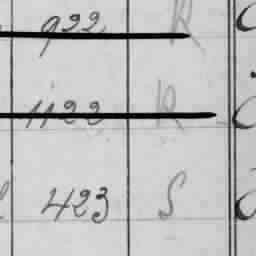 922 R
1122 R
423 S